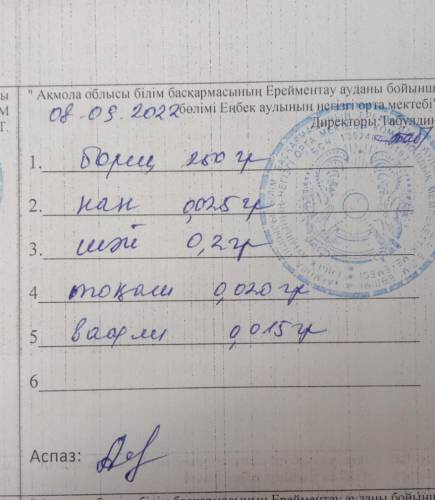 " Ақмола облысы білім басқармасының Ерейментау ауданы бойынша
08.09.2022 бөлімі Еңбек аулының негізгі орта мектебі"
Директоры:
1. борщ 250 гр
2. нан 0,025 гр
3. шәй 0,2 гр
4 тоқаш 0,020 гр
5 вафли 0,015 гр
6
Аспаз: